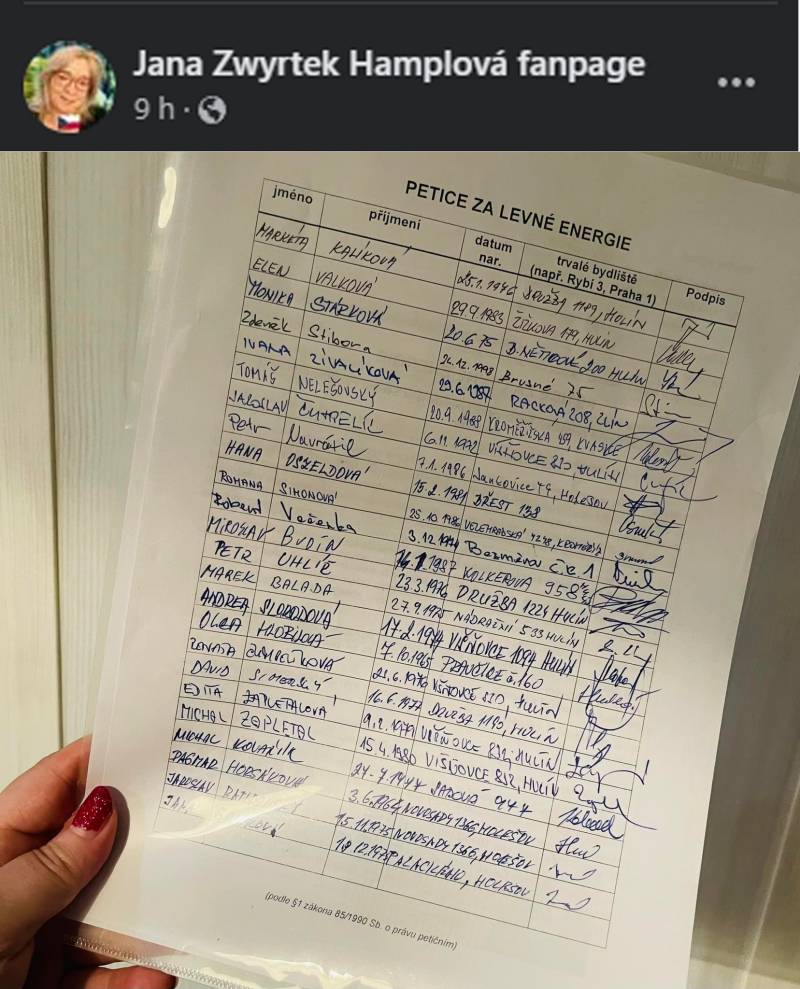 Jana Zwyrtek Hamplová fanpage
9 h
PETICE ZA LEVNÉ ENERGIE
jméno příjmení datum nar. trvalé bydliště (např. Rybí 3, Praha 1) Podpis
MARKÉTA KALÍKOVÁ 25.1.1976 DRUŽBA 1189, HULÍN
ELEN VALKOVÁ 29.9.1983 ŽIŽKOVA 179, HULÍN
MONIKA STÁRKOVÁ 20.6.75 B. NĚMCOVÉ 200 HULÍN
Zdeněk Stibora 24.12.1998 Brusné 75
IVANA ZÍVALÍKOVÁ 29.6.1987 RACKOVÁ 208, ZLÍN
TOMÁŠ NELEŠOVSKÝ 20.9.1988 KROMĚŘÍŽSKÁ KVASICE
JAROSLAV 6.11.1972 VIŠŇOVCE 820, HULÍN
Petr Navrátil 7.1.1986 Jankovice Holešov
HANA OSZELDOVÁ 15.2.1981 BŘEST 138
ROMANA SIMONOVÁ 25.10.1986 VELEHRADSKÁ 4248, KROMĚŘÍŽ
Robert Večerka 3.12.1974 1
MIROSLAV BUDÍN 1987 958
PETR UHLÍŘ 23.3.1976 DRUŽBA HULÍN
MAREK BALADA 27.9.1975 NÁDRAŽNÍ 533 HULÍN
ANDREA SLOBODOVÁ 17.2.1974 VIŠŇOVCE 1094 HULÍN
OLGA HLOBILOVÁ 7.10.1965 PRAVČICE č.160
21.6.1976 VIŠŇOVCE 820, HULÍN
DAVID SIMERSKÝ 16.6.1977 DRUŽBA 1190, HULÍN
EDITA ZAPLETALOVÁ 9.2.1979 VIŠŇOVCE 812, HULÍN
MICHAL ZAPLETAL 15.4.1980 VIŠŇOVCE 812, HULÍN
MICHAL KOVAŘÍK SADOVÁ 947
DAGMAR HORSÁKOVÁ 3.6.1964 NOVOSADY 1366, HOLEŠOV
JAROSLAV 15.11.1975 NOVOSADY 1366, HOLEŠOV
18.12.1975 PALACKÉHO, HOLEŠOV
(podle §1 zákona 85/1990 Sb. o právu petičním)